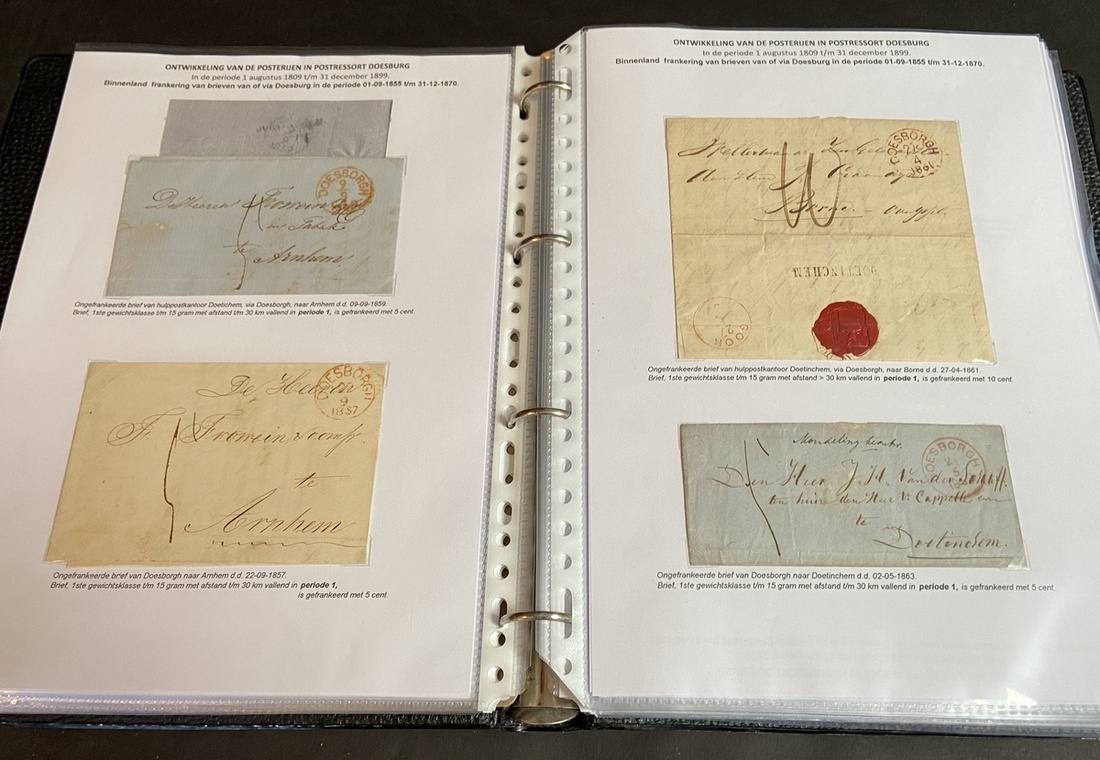 ONTWIKKELING VAN DE POSTERIJEN IN POSTRESSORT DOESBURG
In de periode 1 augustus 1809 t/m 31 december 1899.
Binnenland frankering van brieven van of via Doesburg in de periode 01-09-1855 t/m 31-12-1870.
DOESBORGH
De Heeren
te
Arnhem
Ongefrankeerde brief van hulppostkantoor Doetichem, via Doesborgh, naar Arnhem d.d. 09-09-1859.
Brief, 1ste gewichtsklasse t/m 15 gram met afstand t/m 30 km vallend in periode 1, is gefrankeerd met 5 cent.
De Heeren
DOESBORGH
9
1857
F. Frowein & comp.
te
Arnhem
Ongefrankeerde brief van Doesborgh naar Arnhem d.d. 22-09-1857.
Brief, 1ste gewichtsklasse t/m 15 gram met afstand t/m 30 km vallend in periode 1,
is gefrankeerd met 5 cent.
ONTWIKKELING VAN DE POSTERIJEN IN POSTRESSORT DOESBURG
In de periode 1 augustus 1809 t/m 31 december 1899.
Binnenland frankering van brieven van of via Doesburg in de periode 01-09-1855 t/m 31-12-1870.
DOESBORGH
4
1861
Borne
DOETINCHEM
GOOR
Ongefrankeerde brief van hulppostkantoor Doetinchem, via Doesborgh, naar Borne d.d. 27-04-1861.
Brief, 1ste gewichtsklasse t/m 15 gram met afstand > 30 km vallend in periode 1, is gefrankeerd met 10 cent.
DOESBORGH
Den Heer J. H. Van der
ten huize den Heer V. Cappelle
te
Doetinchem.
Ongefrankeerde brief van Doesborgh naar Doetinchem d.d. 02-05-1863.
Brief, 1ste gewichtsklasse t/m 15 gram met afstand t/m 30 km vallend in periode 1, is gefrankeerd met 5 cent.